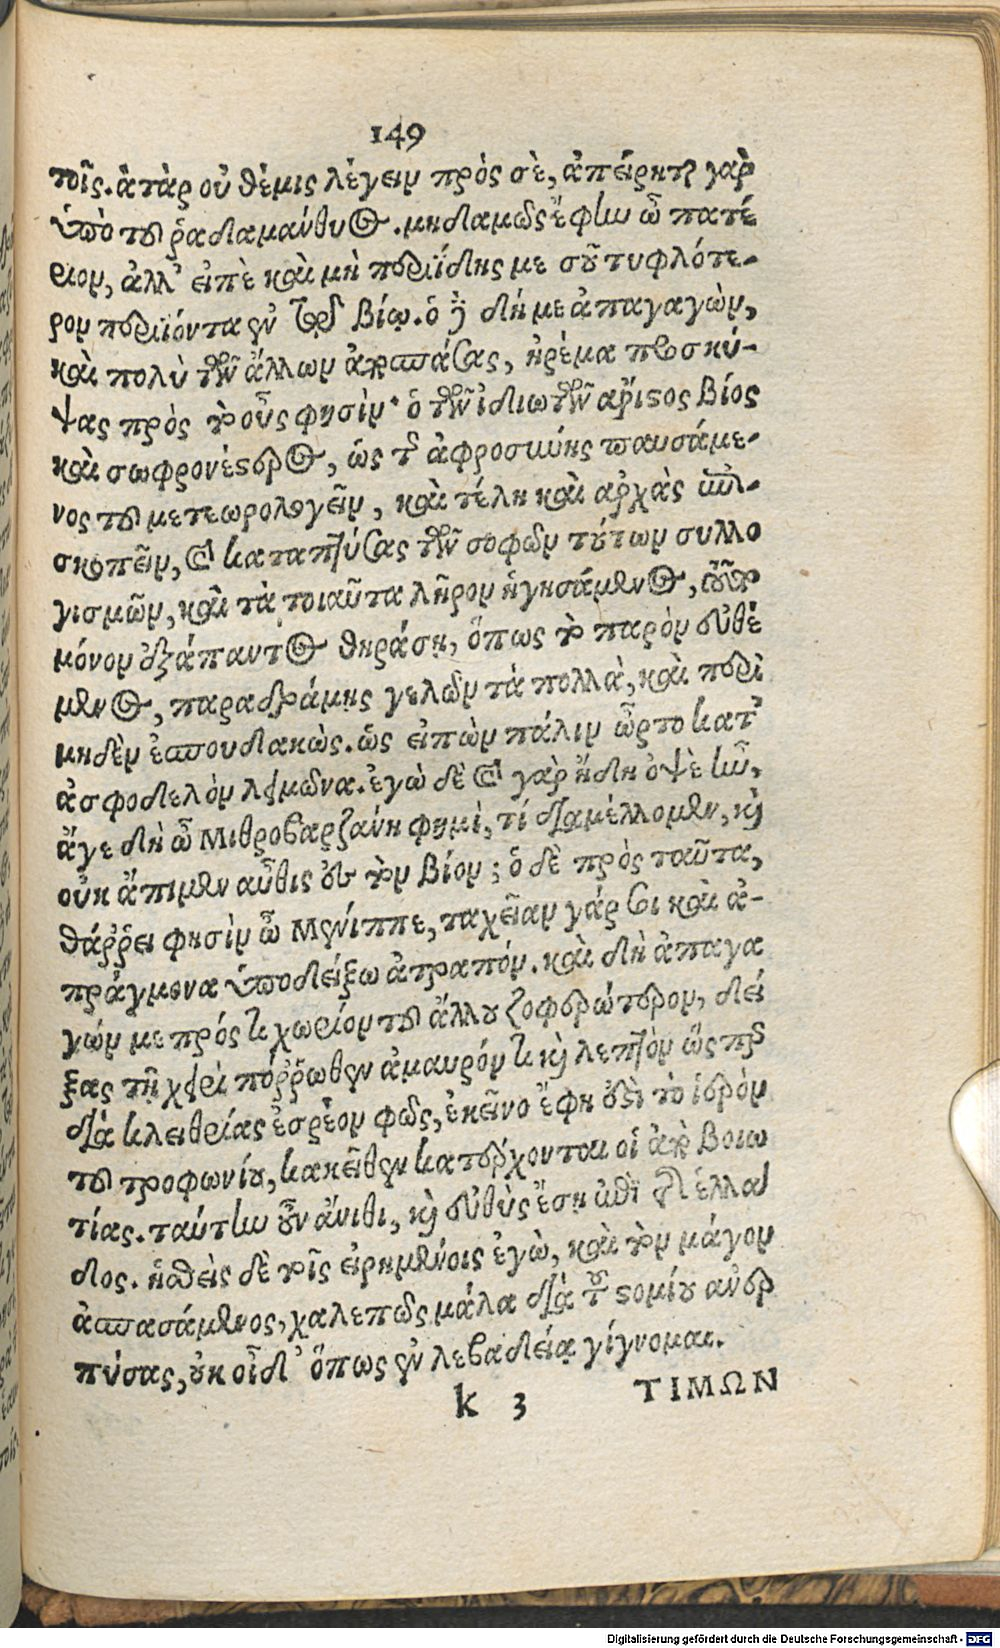 149
τοῖς. ἀτὰρ οὐ θέμις λέγειν πρὸς σὲ, ἀπείρηται γὰρ
ὑπὸ τοῦ ῥαδαμάνθυος. μηδαμῶς ἔφην ὦ πατέ
ριον, ἀλλ' εἰπὲ καὶ μὴ περιΐδῃς με σοῦ τυφλότε-
ρον περιϊόντα ἐν τῷ βίῳ. ὁ δὲ δή με ἀπαγαγὼν,
καὶ πολὺ τῶν ἄλλων ἀποσπάσας, ἠρέμα προσκύ-
ψας πρὸς τὸ οὖς φησὶν· ὁ τῶν ἰδιωτῶν ἄριστος βίος
καὶ σωφρονέστερος, ὡς τῆς ἀφροσύνης παυσάμε-
νος τοῦ μετεωρολογεῖν, καὶ τέλη καὶ ἀρχὰς ἐπι-
σκοπεῖν, καὶ καταπτύσας τῶν σοφῶν τούτων συλλο
γισμῶν, καὶ τὰ τοιαῦτα λῆρον ἡγησάμενος, τοῦτο
μόνον ἐξάπαντος θηράσῃ, ὅπως τὸ παρὸν εὐθέ
μενος, παραδράμῃς γελῶν τὰ πολλὰ, καὶ περὶ
μηδὲν ἐσπουδακὼς. ὣς εἰπὼν πάλιν ὦρτο κατ'
ἀσφοδελὸν λειμῶνα. ἐγὼ δὲ καὶ γὰρ ἤδη ὀψὲ ἦν,
ἄγε δὴ ὦ Μιθροβαρζάνη φημὶ, τί διαμέλλομεν, καὶ
οὐκ ἄπιμεν αὖθις ἐς τὸν βίον; ὁ δὲ πρὸς ταῦτα,
θάῤῥει φησὶν ὦ Μένιππε, ταχεῖαν γάρ σοι καὶ ἀ-
πράγμονα ὑποδείξω ἀτραπόν. καὶ δὴ ἀπαγα
γών με πρός τι χωρίον τοῦ ἄλλου ζοφερώτερον, δεί
ξας τῇ χειρὶ πόῤῥωθεν ἀμαυρόν τι καὶ λεπτὸν ὥσπερ
διὰ κλειθρίας ἐσρέον φῶς, ἐκεῖνο ἔφη ἐστὶ τὸ ἱερὸν
τοῦ τροφωνίου, κακεῖθεν κατέρχονται οἱ ἀπὸ βοιω
τίας. ταύτην οὖν ἄνιθι, καὶ εὐθὺς ἔσῃ ἐπὶ τῆς ἑλλά
δος. ἡσθεὶς δὲ τοῖς εἰρημένοις ἐγὼ, καὶ τὸν μάγον
ἀσπασάμενος, χαλεπῶς μάλα διὰ τοῦ στομίου ἀνερ
πύσας, οὐκ οἶδ' ὅπως ἐν λεβαδείᾳ γίγνομαι.
k 3 ΤΙΜΩΝ
Digitalisierung gefördert durch die Deutsche Forschungsgemeinschaft - DFG